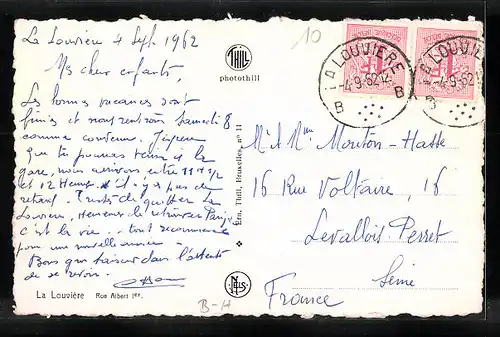 La Louvière 4 Sept 1962
Mes chers enfants,
Les bonnes vacances sont
finies et nous rentrons Samedi 8
comme convenu. J'espère
que tu pourras venir à la
gare, nous arrivons entre 11 H ½
et 12 Heures s'il n'y a pas de
retard. Tristes de quitter La
Louvière, heureux de retrouver Paris
c'est la vie... tout recommence
pour une nouvelle année.
Bons gros baisers dans l'attente
de se revoir.
La Louvière Rue Albert Ier.
THILL
photothill
Ern. Thill, Bruxelles, nº 11
NELS
B-H
10
LA LOUVIERE
4-9-62 12
B B
LA LOUVIE
-4-9-62 12
B
Mr & Mme Mouton-Hatte
16 Rue Voltaire, 16
Levallois Perret
Seine
France